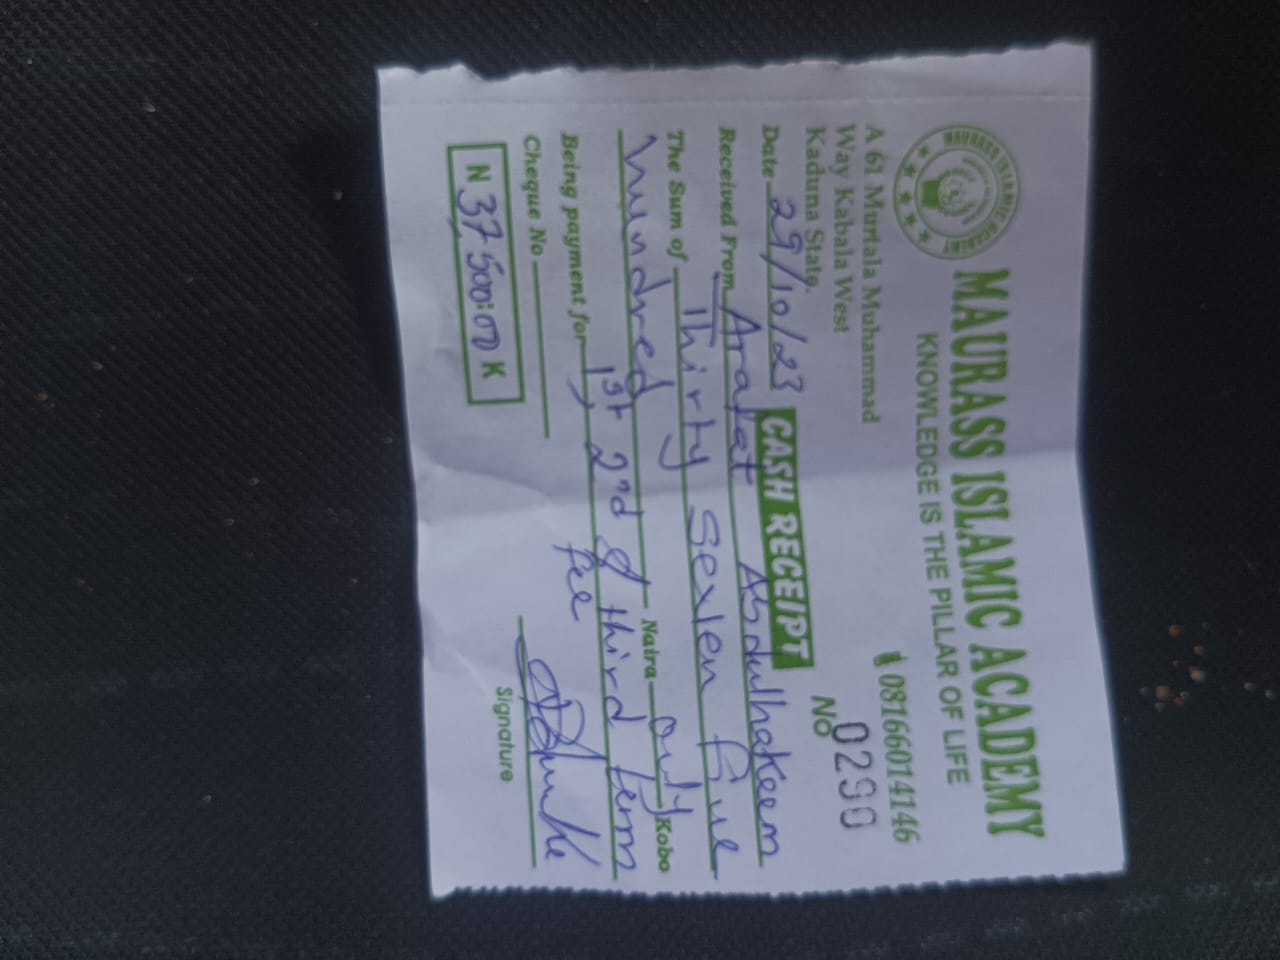 MAURASS ISLAMIC ACADEMY
KNOWLEDGE IS THE PILLAR OF LIFE
MAURASS ISLAMIC ACADEMY
A 61 Murtala Muhammad
Way Kabala West
Kaduna State.
08166014146
CASH RECEIPT
No 0290
Date 29/10/23
Received From Arafat Abdulhakeem
The Sum of Thirty Sexlen five
hundred Naira only Kobo
Being payment for 1st, 2nd & third term
fee
Cheque No
N 37,500:00 K
Signature